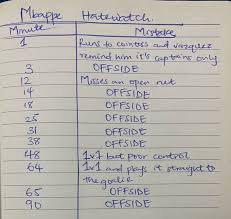 Mbappe Hatewatch.
Minute Mistake
1 Runs to cointoss and vazquez
remind him it's captains only
3 OFFSIDE
12 Misses an open net
14 OFFSIDE
18 OFFSIDE
25 OFFSIDE
31 OFFSIDE
38 OFFSIDE
48 1v1 but poor control
64 1v1 and plays it straight to
the goalie
65 OFFSIDE
90 OFFSIDE